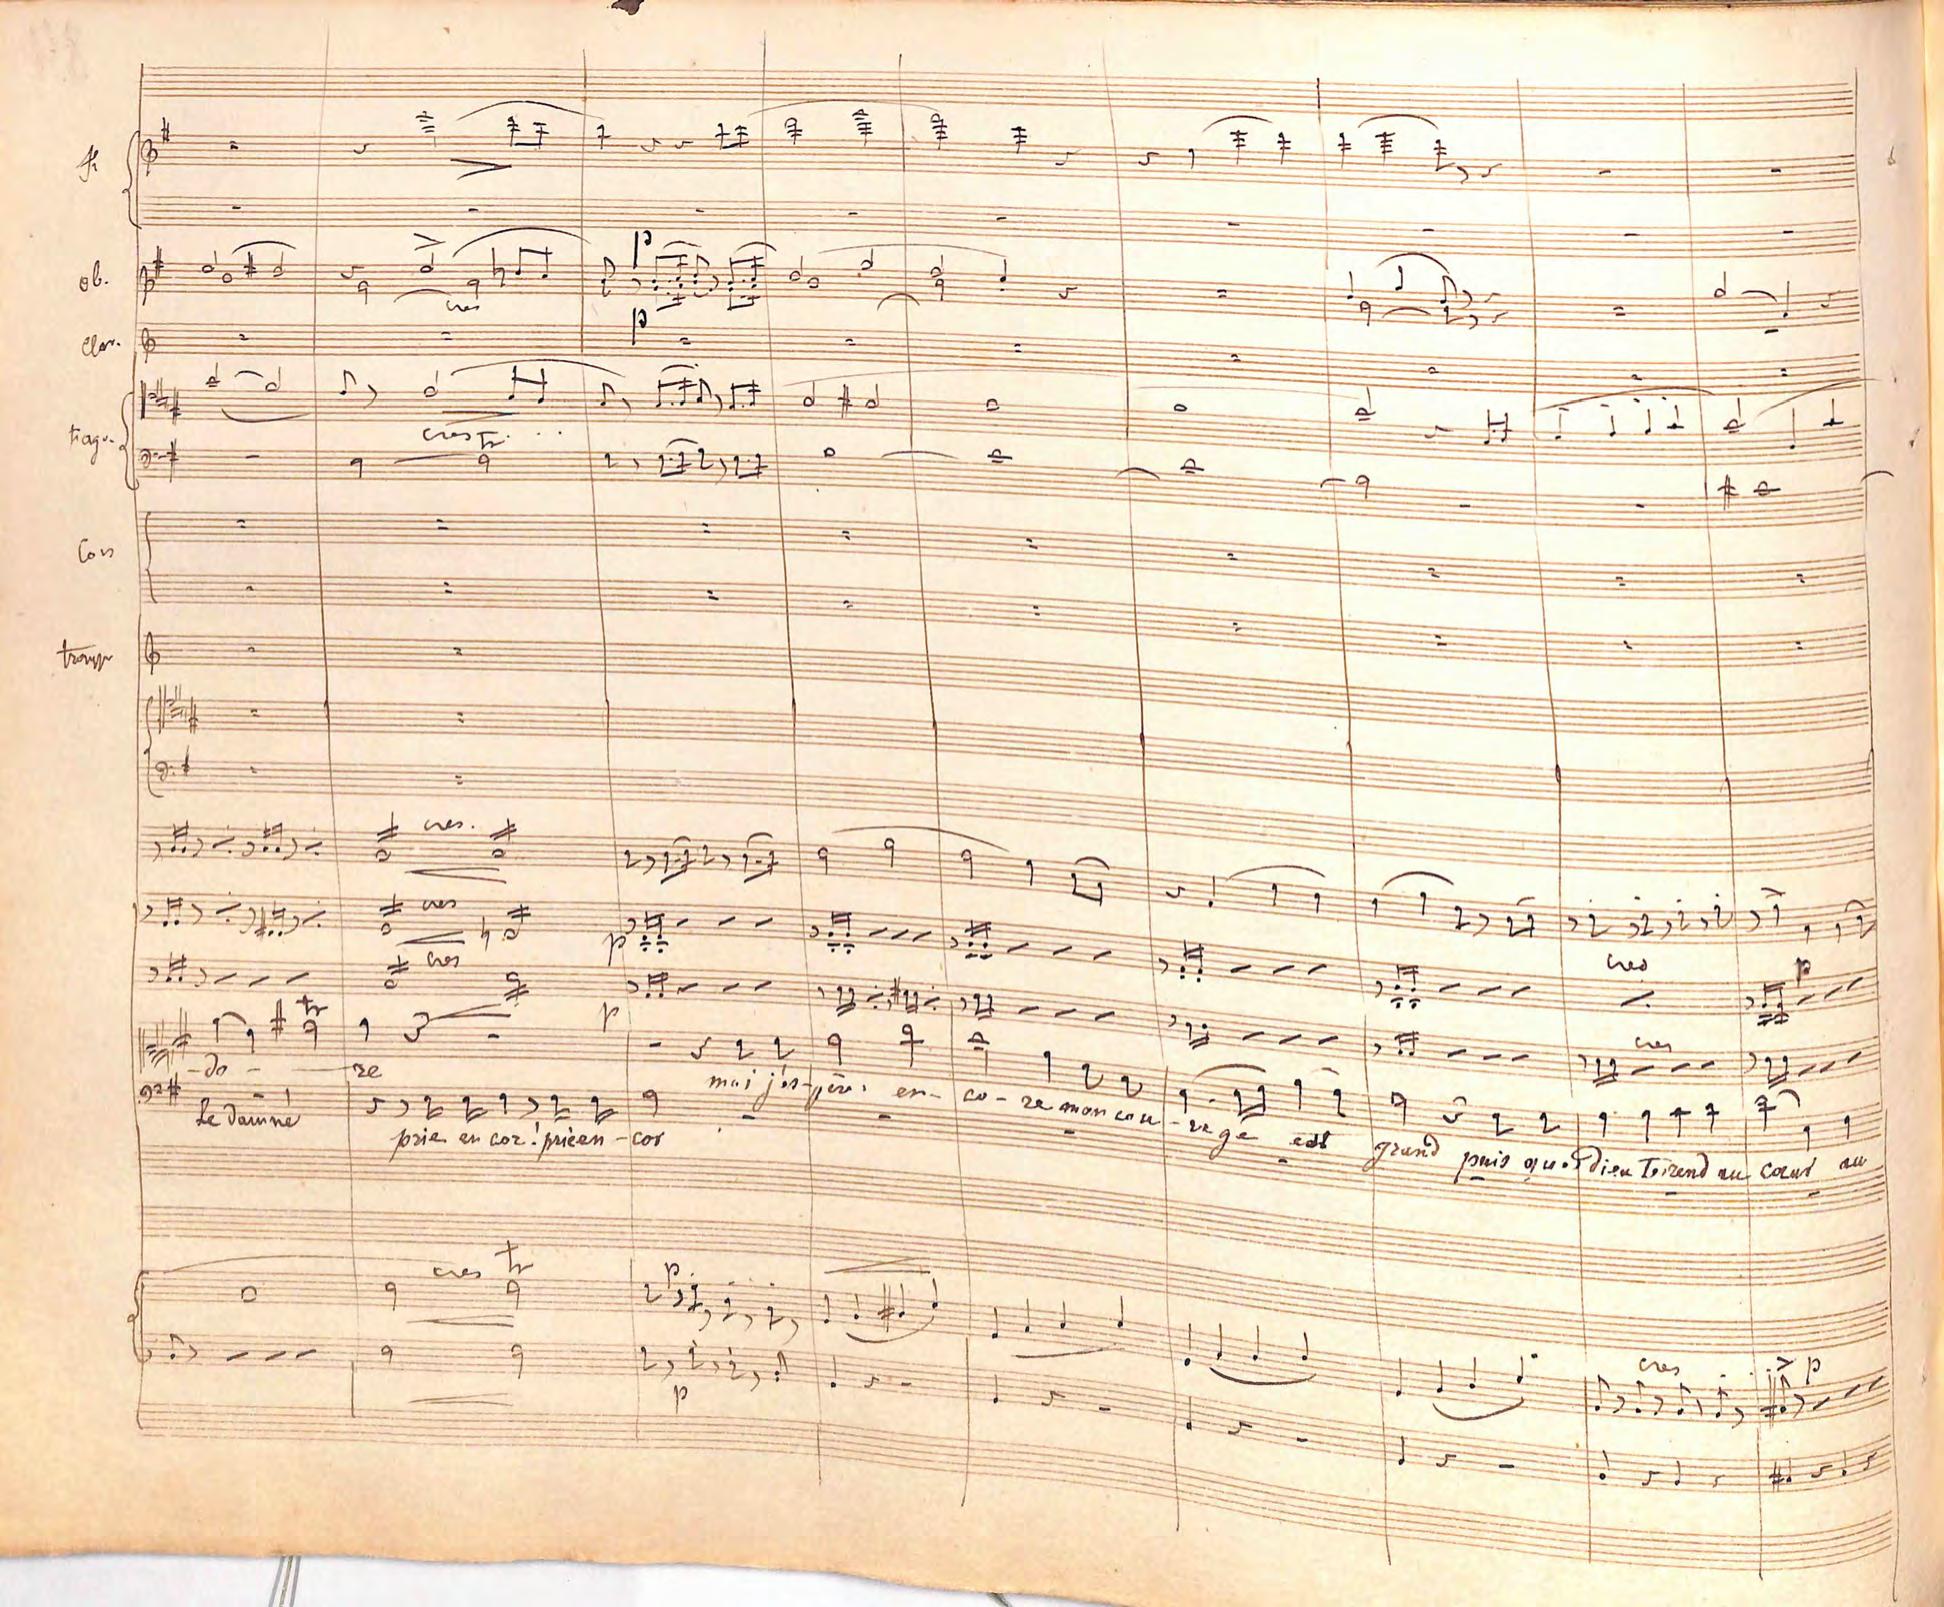 fl
p
ob.
cres
Clar.
p
fag.
cres tr
Cors
tromp
cres.
cres
p
cres
cres
p
tr
p
cres
-do - re
moi j'espère en - co - re mon cou - rage est grand puis que dieu rend au coeur au
Le damné
prie encor! prie en - cor
cres tr
p
cres
p
p